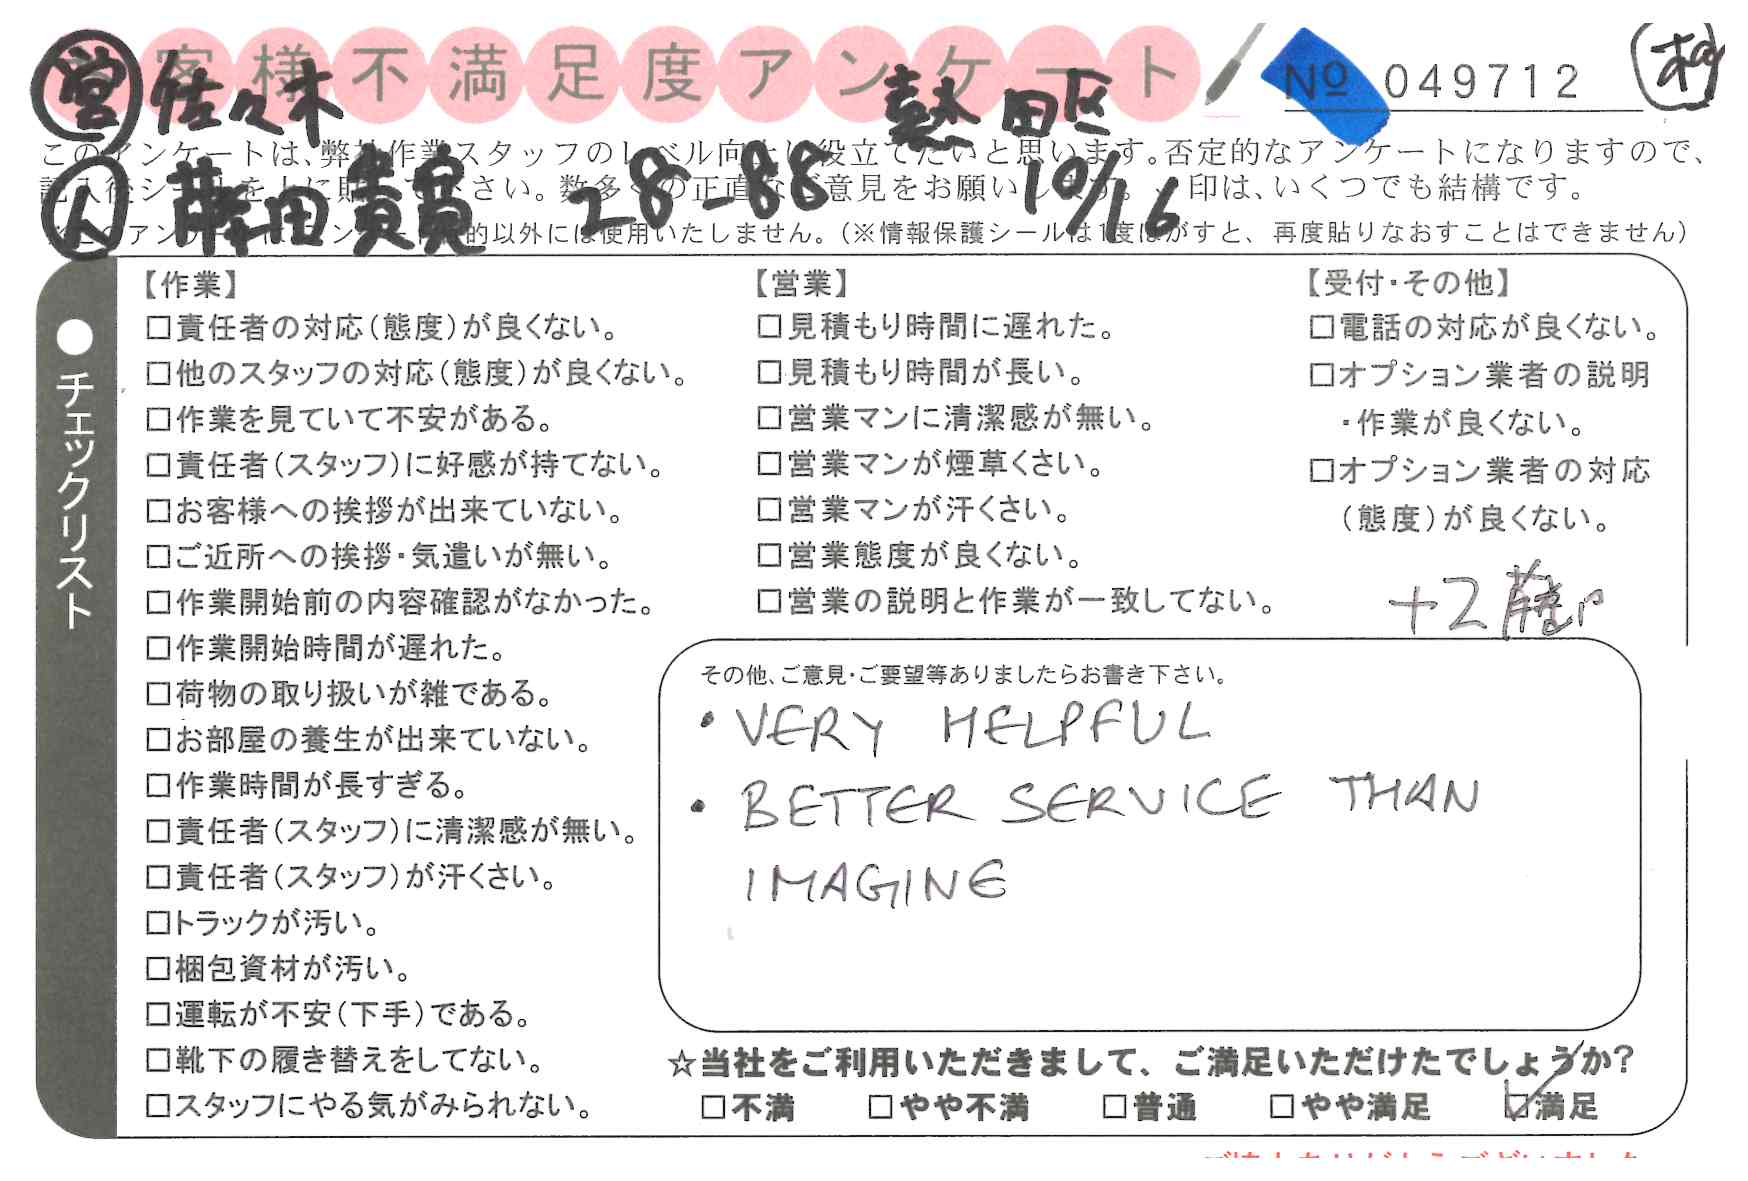 お客様不満足度アンケート No 049712
営 佐々木 熱田区
このアンケートは、弊社作業スタッフのレベル向上に役立てたいと思います。否定的なアンケートになりますので、
記入後シールを上に貼って下さい。数多くの正直なご意見をお願いします。✓印は、いくつでも結構です。
人 藤田貴 28-88 10/16
※このアンケートはアンケート目的以外には使用いたしません。（※情報保護シールは1度はがすと、再度貼りなおすことはできません）
●チェックリスト
【作業】
□責任者の対応（態度）が良くない。
□他のスタッフの対応（態度）が良くない。
□作業を見ていて不安がある。
□責任者（スタッフ）に好感が持てない。
□お客様への挨拶が出来ていない。
□ご近所への挨拶・気遣いが無い。
□作業開始前の内容確認がなかった。
□作業開始時間が遅れた。
□荷物の取り扱いが雑である。
□お部屋の養生が出来ていない。
□作業時間が長すぎる。
□責任者（スタッフ）に清潔感が無い。
□責任者（スタッフ）が汗くさい。
□トラックが汚い。
□梱包資材が汚い。
□運転が不安（下手）である。
□靴下の履き替えをしてない。
□スタッフにやる気がみられない。
【営業】
□見積もり時間に遅れた。
□見積もり時間が長い。
□営業マンに清潔感が無い。
□営業マンが煙草くさい。
□営業マンが汗くさい。
□営業態度が良くない。
□営業の説明と作業が一致してない。
【受付・その他】
□電話の対応が良くない。
□オプション業者の説明
・作業が良くない。
□オプション業者の対応
（態度）が良くない。
+2
その他、ご意見・ご要望等ありましたらお書き下さい。
• VERY HELPFUL
• BETTER SERVICE THAN
IMAGINE
☆当社をご利用いただきまして、ご満足いただけたでしょうか?
□不満 □やや不満 □普通 □やや満足 ☑満足